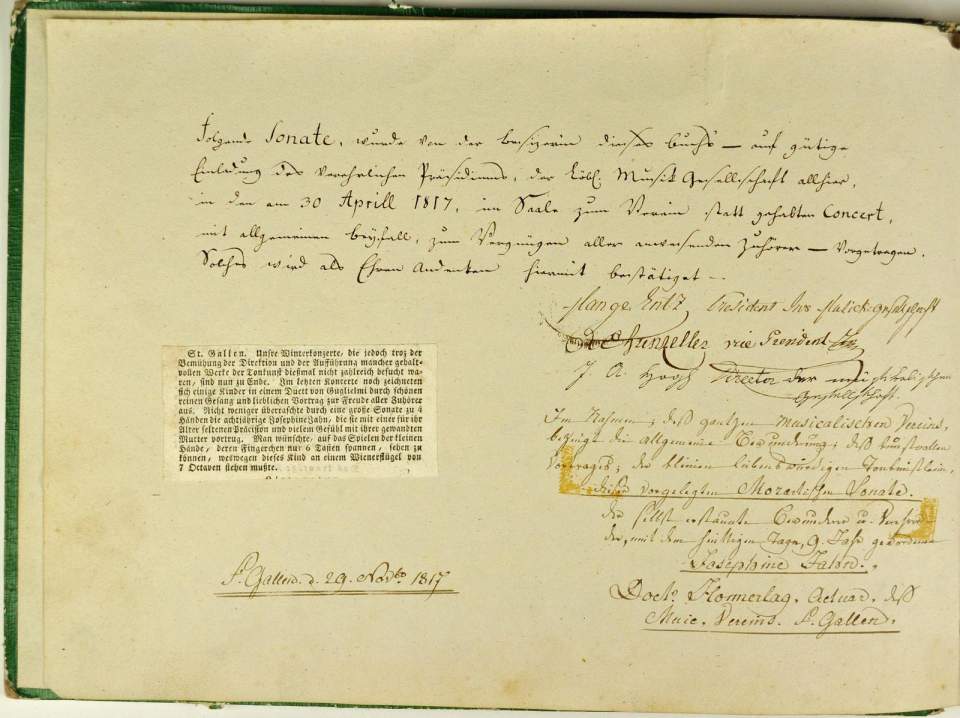 Folgende Sonate, wurde von der besizerin dieses buchs – auf gütige
Einladung des verehrlichen Präsidiums, der Löbl. Musik Gesellschaft allhier,
in den am 30 Aprill 1817, im Saale zum Verein statt gehabten Concert,
mit allgemeinen beyfall, zum Vergnügen aller anwesenden Zuhörer – vorgetragen.
Solches wird als Ehren Andenken hiermit bestätiget –
President
vice President
J. A. Director der musikalischen
Gesellschaft.
St. Gallen. Unsre Winterkonzerte, die jedoch troz der
Bemühung der Direktion und der Aufführung mancher gehalt-
vollen Werke der Tonkunst diesmal nicht zahlreich besucht wa-
ren, sind nun zu Ende. Im letzten Konzerte noch zeichneten
sich einige Kinder in einem Duett von Guglielmi durch schönen
reinen Gesang und lieblichen Vortrag zur Freude aller Zuhörer
aus. Nicht weniger überraschte durch eine große Sonate zu 4
Händen die achtjährige Josephine Jahn, die sie mit einer für ihr
Alter seltenen Präcision und vielem Gefühl mit ihrer gewandten
Mutter vortrug. Man wünschte, auf das Spielen der kleinen
Hände, deren Fingerchen nur 6 Tasten spannen, sehen zu
können, weswegen dieses Kind an einem Wienerflügel von
7 Octaven stehen mußte.
Im Nahmen, des ganzen musicalischen Vereins,
bezeugt die allgemeine Bewunderung, des kunstvollen
Vortrages, der kleinen liebenswürdigen Tonkünstlerin,
dieser vorgelegten Mozartischen Sonate.
der selbst erstaunte Bewunderer u. Verehrer
der, mit dem heutigen Tage, 9. Jahr gewordenen
Josephine Jahn.
Doctr. Actuar. deß
Music. Vereins. St. Gallen.
St. Gallen. d. 29. Novbr. 1817